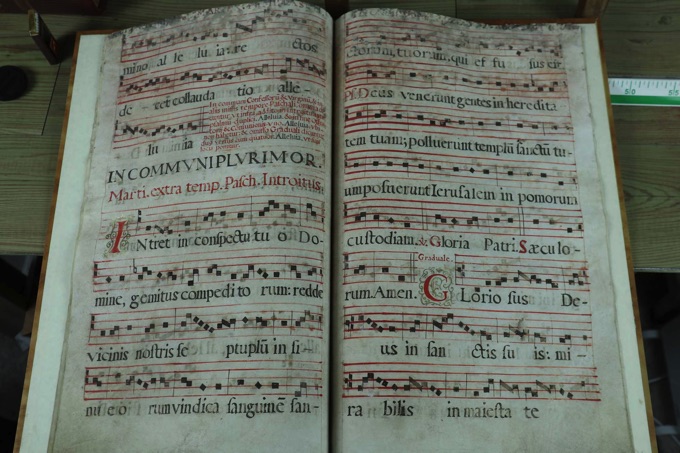 mino, al le lu ia: re ctos:
de cet collauda tio alle-
lu ia
IN COMMVNI PLVRIMOR.
Marti. extra temp. Pasch. Introitus
INtret in conspectu tu o Do-
mine, gemitus compedi to rum: redde
vicinis nostris se ptuplũ in si-
nu e o rum vindica sanguinẽ san-
ctorum, tuorum, qui ef fu sus est.
Ps. Deus venerunt gentes in heredita
tem tuam; polluerunt templũ sanctũ tu-
um posuerunt Ierusalem in pomorum
custodiam. Gloria Patri. Sæculo-
Graduale.
rum. Amen. GLorio sus De-
us in san ctis su is: mi-
ra bilis in maiesta te